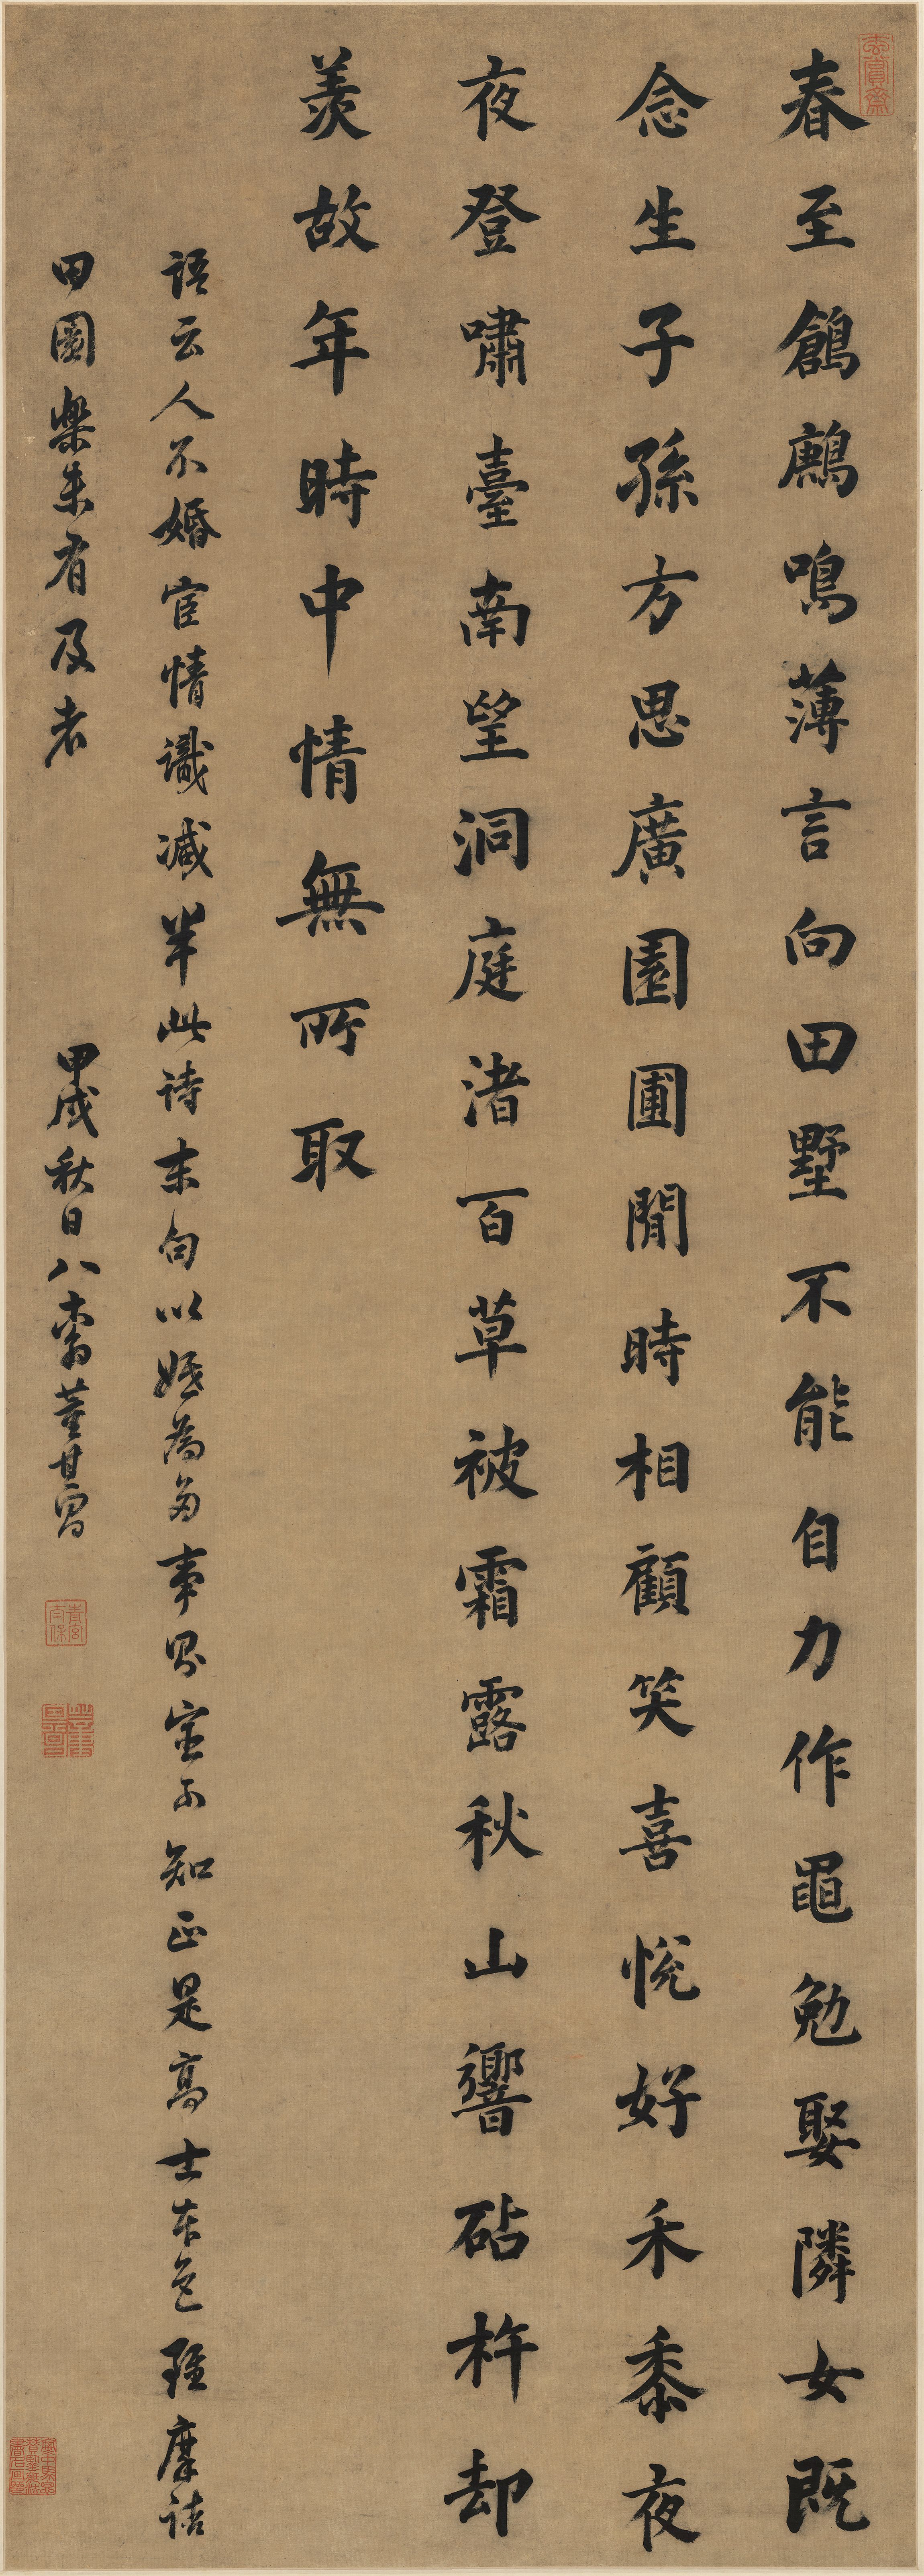 玄賞齋
春至鶬鶊鳴薄言向田墅不能自力作黽勉娶隣女既
念生子孫方思廣園圃閒時相顧笑喜悅好禾黍夜
夜登嘯臺南望洞庭渚百草被霜露秋山響砧杵却
羨故年時中情無所取
語云人不婚宦情識減半此詩末句以婚為多事況宦可知正是高士本色雖摩詰
田園樂未有及者 甲戌秋日八十翁董其昌
青宮太保